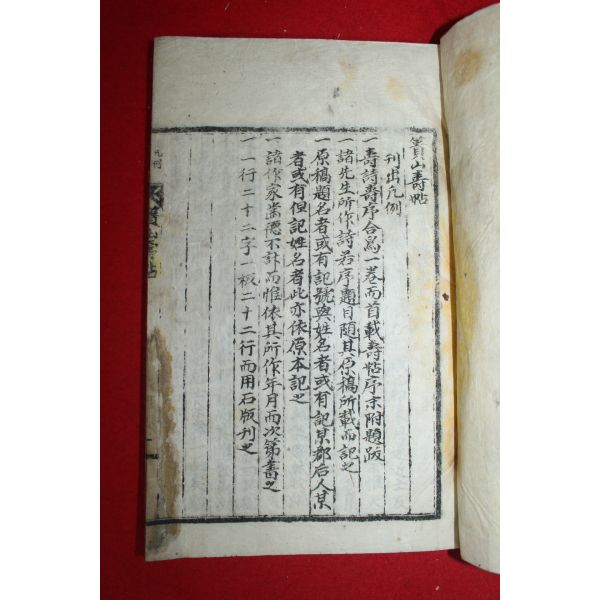 簣山壽帖
刊出凡例
一壽詩壽序合爲一卷而首載壽帖序末附題跋
一諸先生所作詩若序題目隨其原稿所載而記之
一原稿題名者或有記號與姓名者或有記某郡后人某
者或有但記姓名者此亦依原本記之
一諸作家齒德不計而惟依其所作年月而次第書之
一一行二十二字一板二十二行而用石版刊之
凡例
山壽帖
一